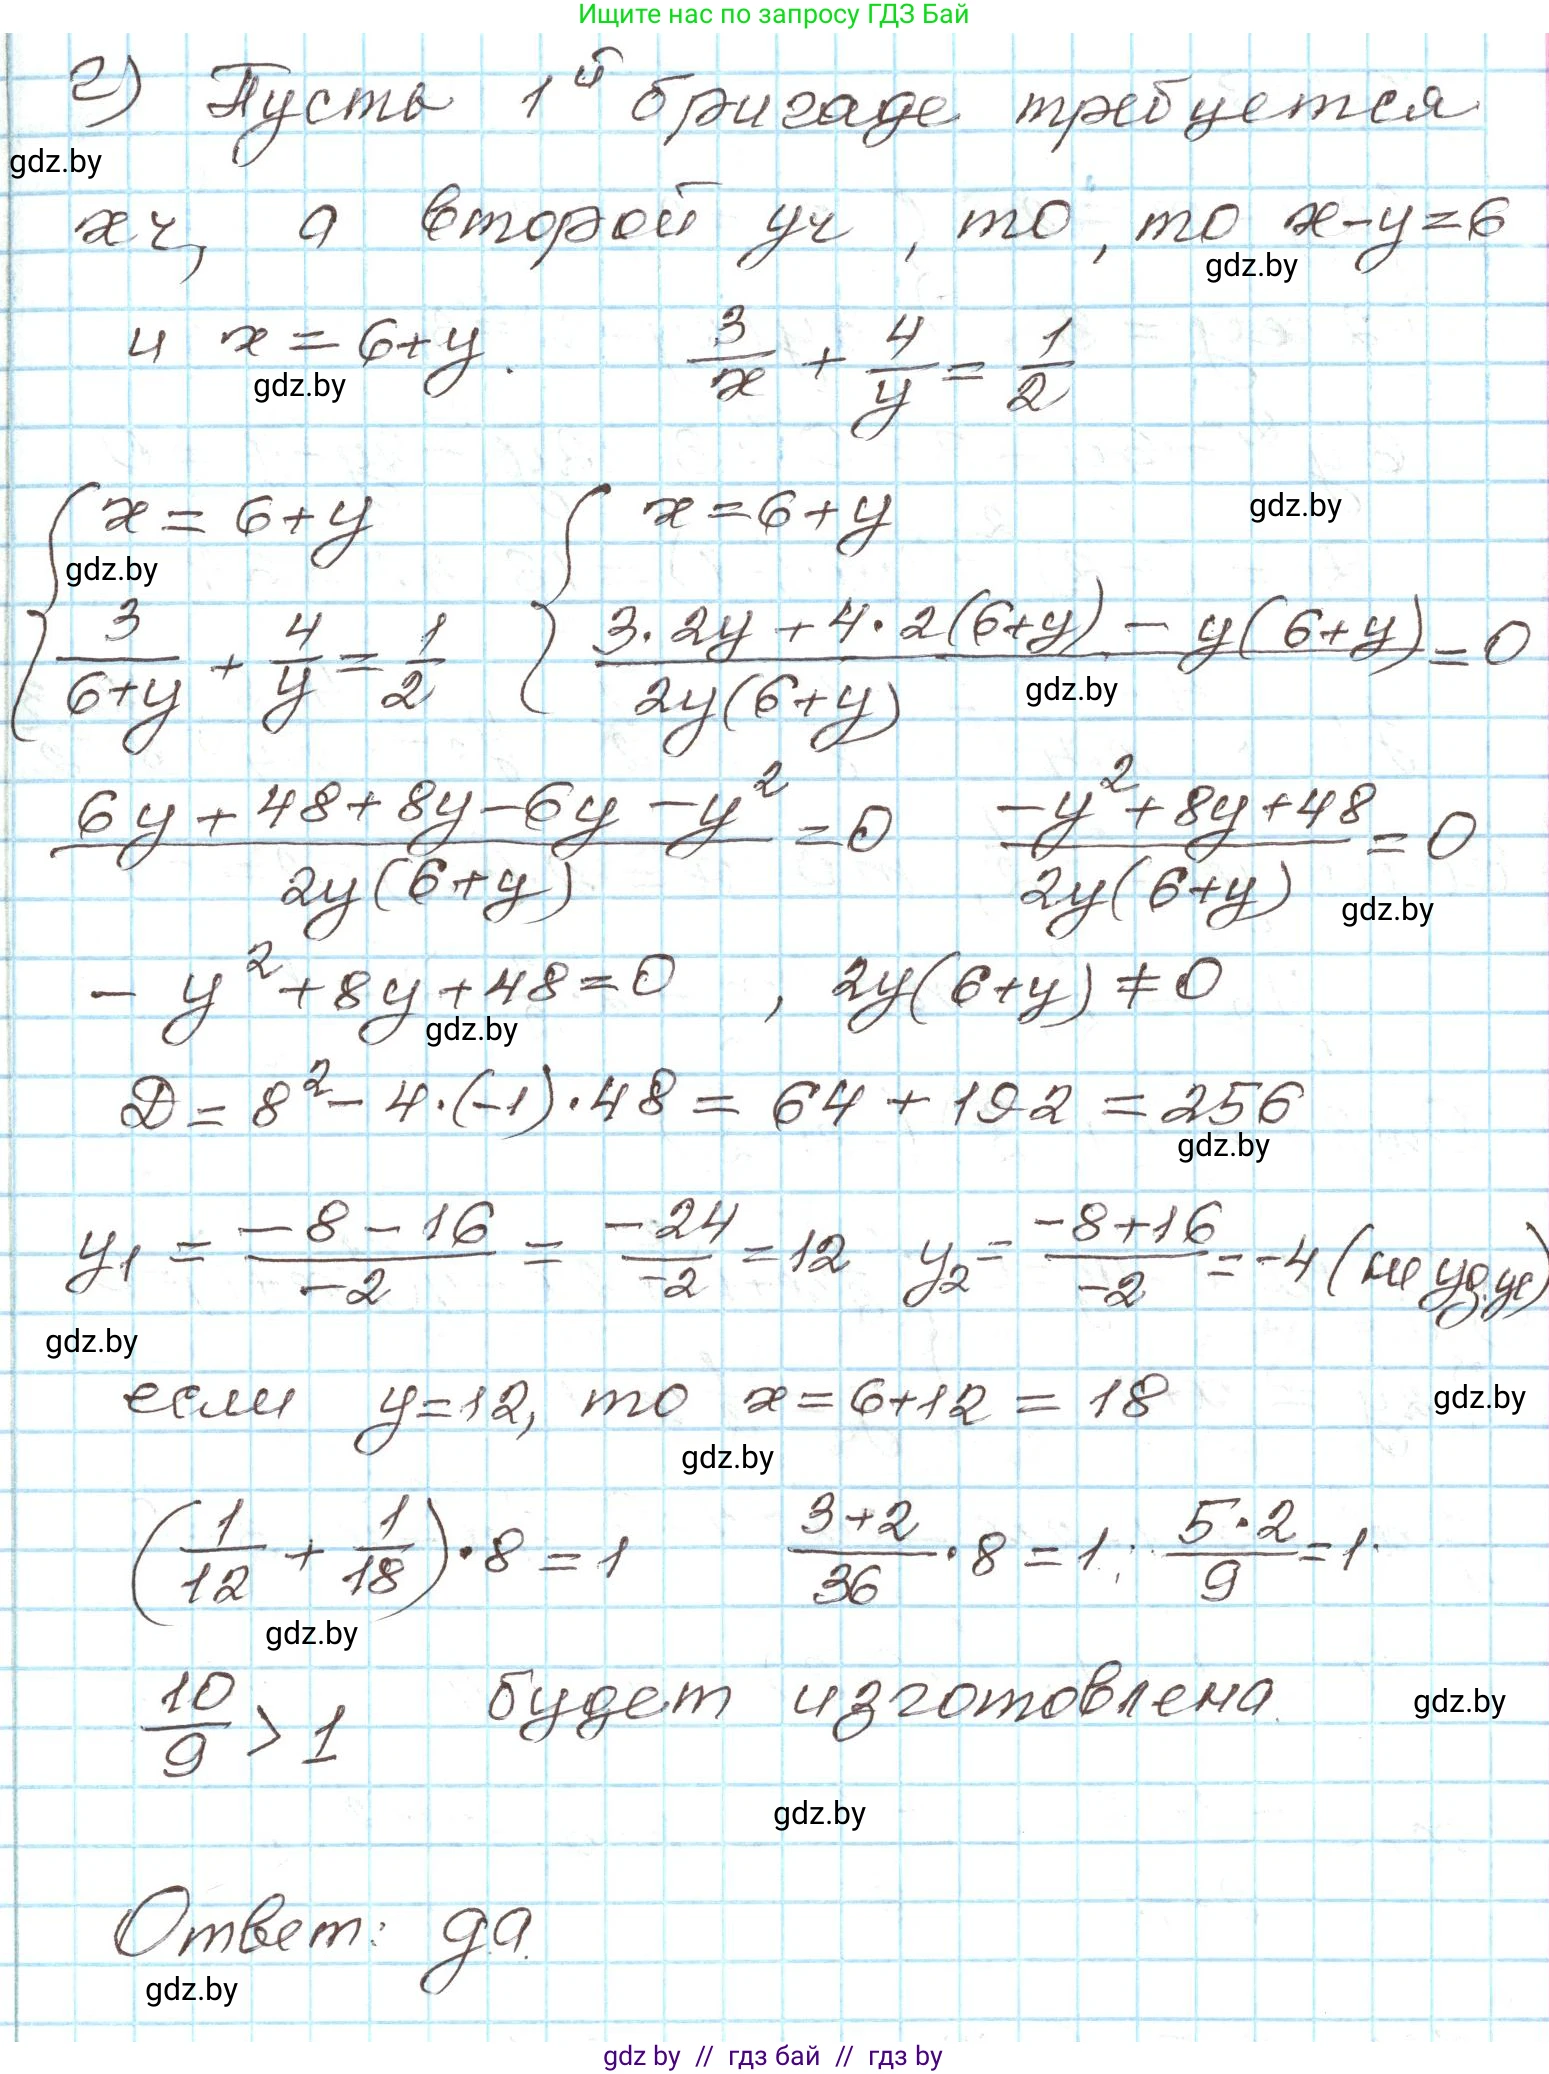 Ищите нас по запросу ГДЗ Бай
г) Пусть 1й бригаде требуется
gdz.by
x ч, а второй y ч, то, то x-y=6
gdz.by
и x = 6+y. 3/x + 4/y = 1/2
gdz.by
{ x = 6+y { x = 6+y
gdz.by
gdz.by
3/(6+y) + 4/y = 1/2 (3·2y + 4·2(6+y) - y(6+y))/(2y(6+y)) = 0
gdz.by
(6y + 48 + 8y - 6y - y²)/(2y(6+y)) = 0 (-y² + 8y + 48)/(2y(6+y)) = 0
gdz.by
- y² + 8y + 48 = 0 , 2y(6+y) ≠ 0
gdz.by
D = 8² - 4·(-1)·48 = 64 + 192 = 256
gdz.by
y₁ = (-8-16)/-2 = -24/-2 = 12 y₂ = (-8+16)/-2 = -4 (не уд. ус)
gdz.by
если y=12, то x = 6+12 = 18
gdz.by
gdz.by
(1/12 + 1/18)·8 = 1 (3+2)/36 · 8 = 1; (5·2)/9 = 1
gdz.by
10/9 > 1 будет изготовлена.
gdz.by
gdz.by
Ответ: да.
gdz.by
gdz by // гдз бай // гдз by